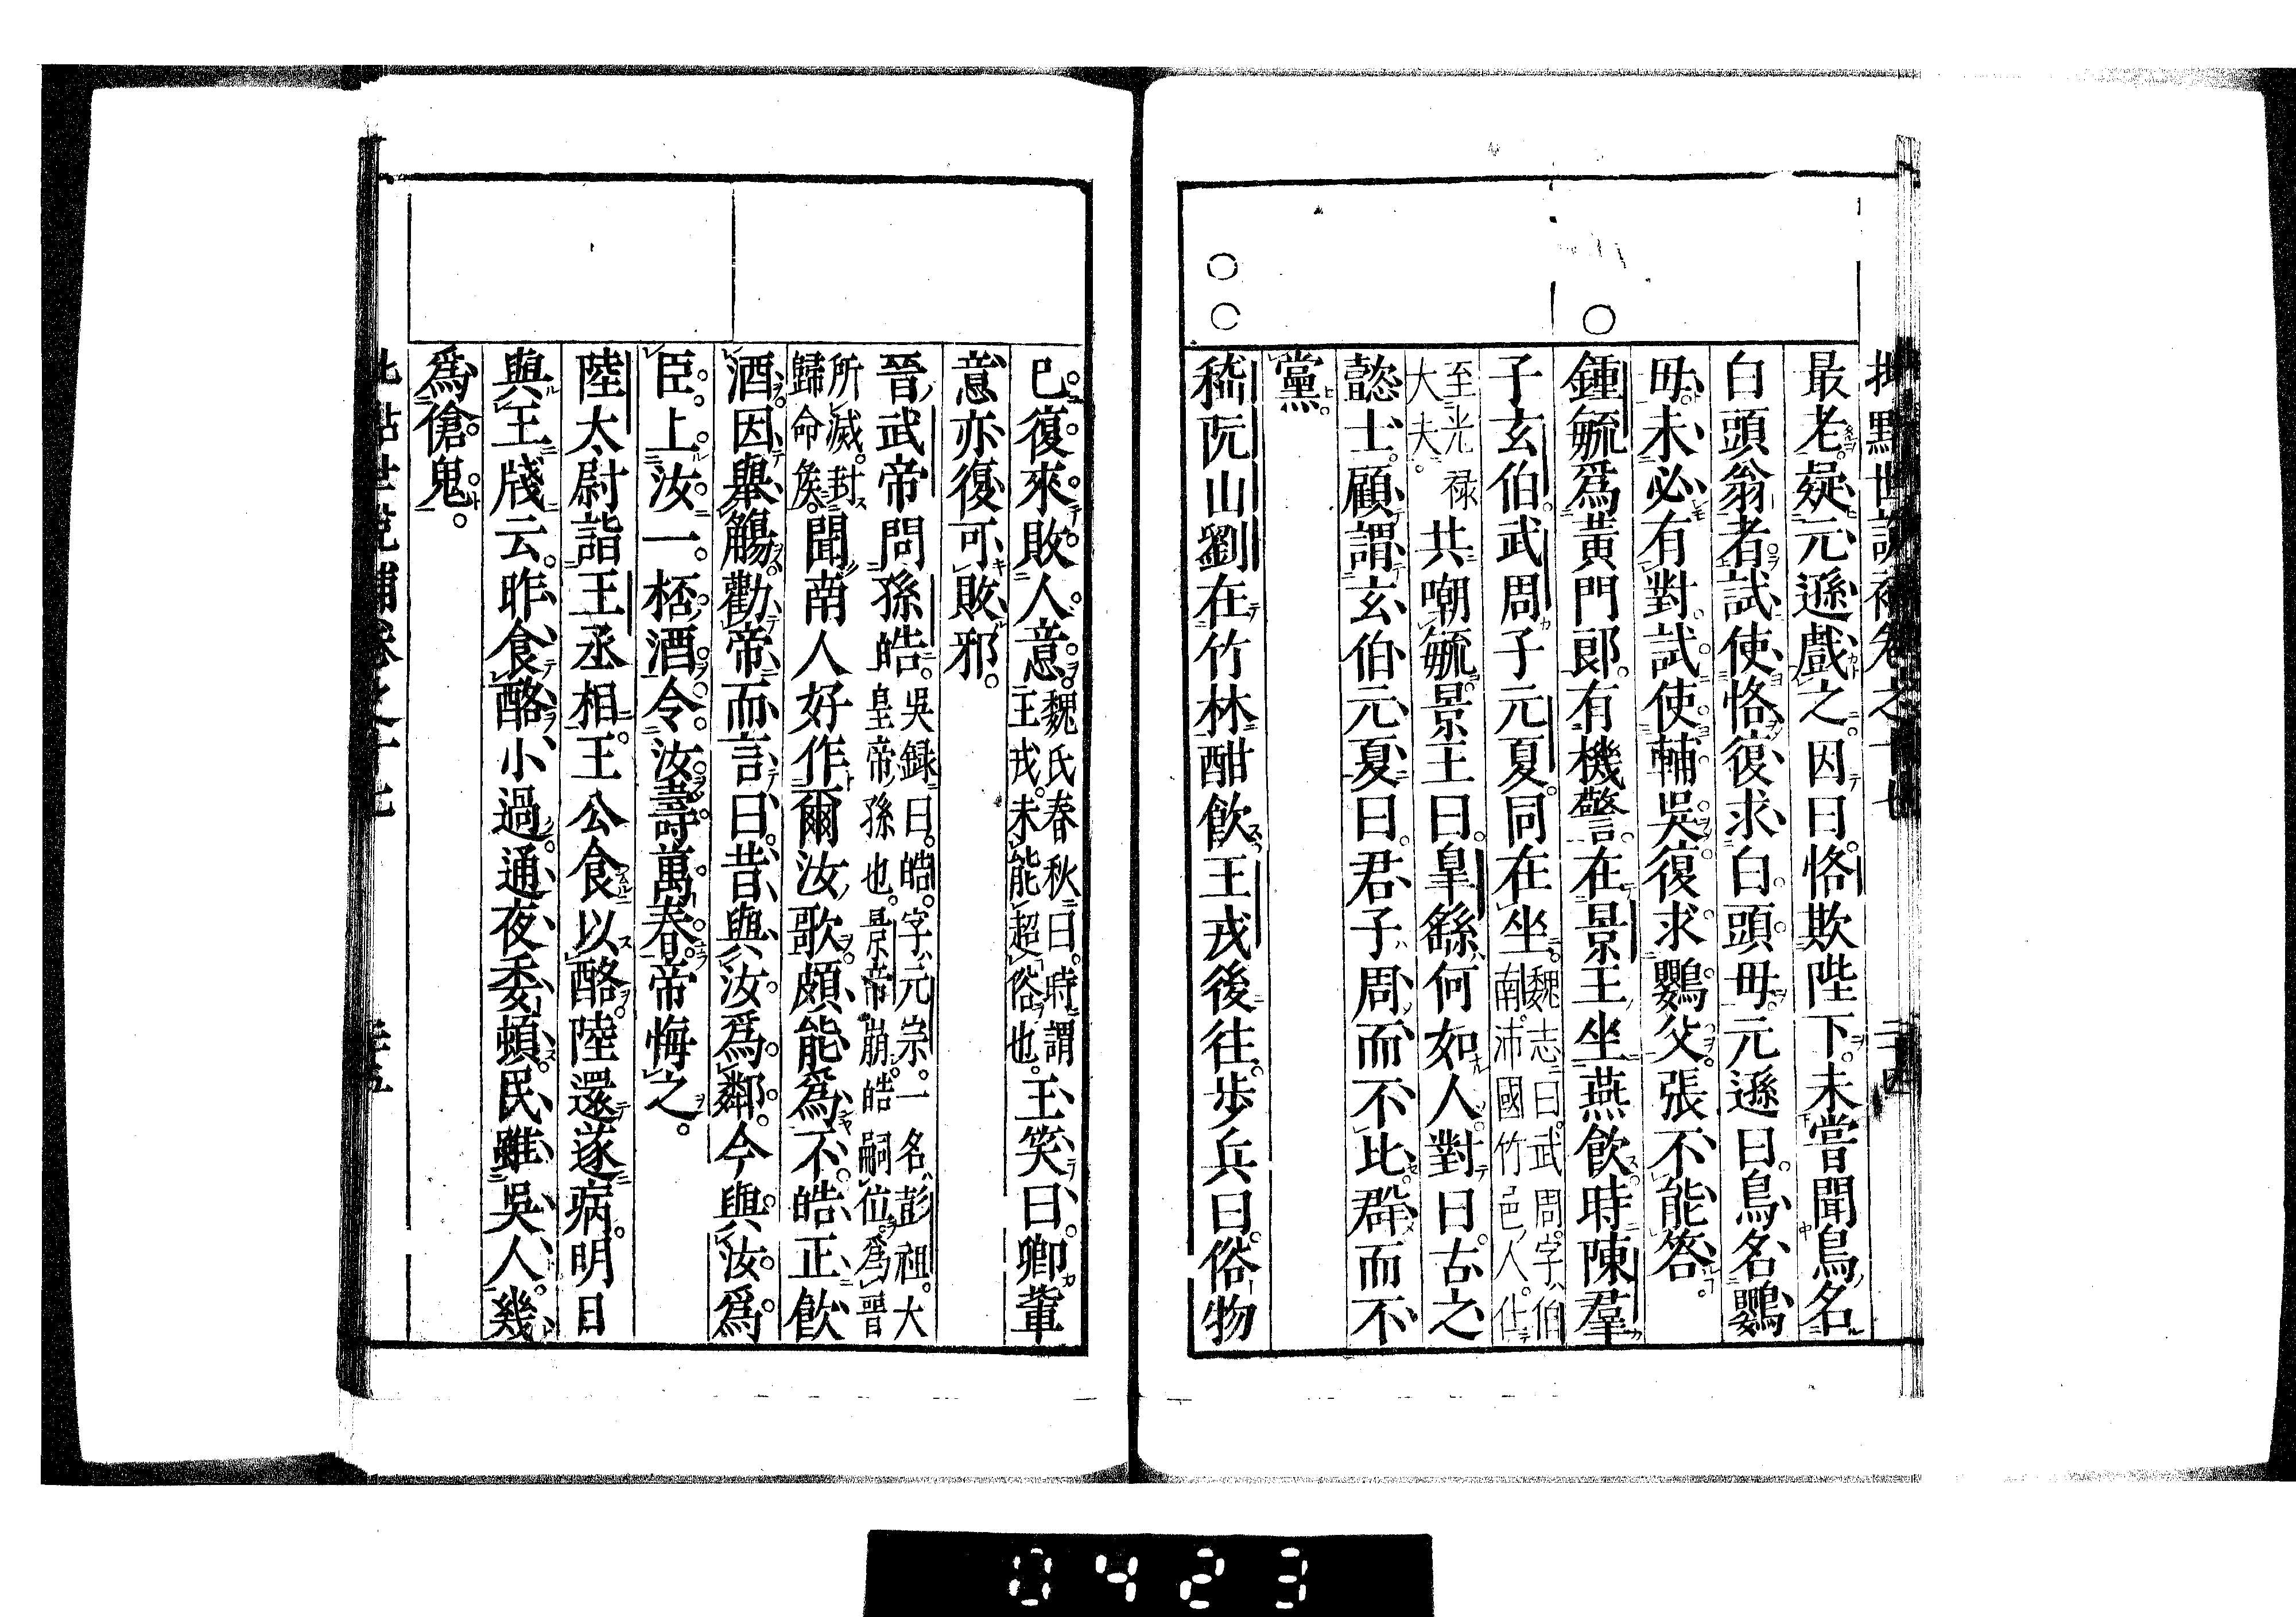 批點世說補卷之十七 二十四
最老疑元遜戲之因曰恪欺陛下未嘗聞鳥名
白頭翁者試使恪復求白頭母元遜曰鳥名鸚
母未必有對試使輔吳復求鸚父張不能答
鍾毓爲黃門郎有機警在景王坐燕飲時陳羣
子玄伯武周子元夏同在坐魏志曰武周字伯南沛國竹邑人仕
至光祿大夫共嘲毓景王曰皐繇何如人對曰古之
懿士顧謂玄伯元夏曰君子周而不比群而不
黨
嵇阮山劉在竹林酣飲王戎後往步兵曰俗物
已復來敗人意魏氏春秋曰時謂王戎未能超俗也王笑曰卿輩
意亦復可敗邪
晉武帝問孫皓吳錄曰皓字元宗一名彭祖大皇帝孫也景帝崩皓嗣位爲晉
所滅封歸命矦聞南人好作爾汝歌頗能爲不皓正飲
酒因舉觴勸帝而言曰昔與汝爲鄰今與汝爲
臣上汝一桮酒令汝壽萬春帝悔之
陸太尉詣王丞相王公食以酪陸還遂病明日
與王牋云昨食酪小過通夜委頓民雖吳人幾
爲傖鬼
批點世說補卷之十七 二十五
0423